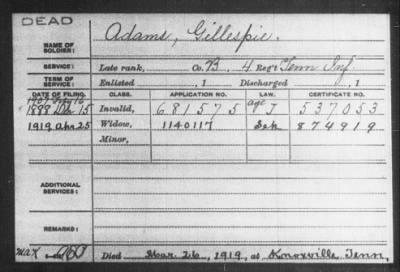 DEAD
NAME OF SOLDIER: Adams, Gillespie.
SERVICE: Late rank, Co. B, 4 Reg't Tenn Inf.
TERM OF SERVICE: Enlisted , 1 Discharged , 1
DATE OF FILING. CLASS. APPLICATION NO. LAW. CERTIFICATE NO.
1907 Feby 16
1888 15 Invalid, 681575 age J 537053
1919 Apr 25 Widow, 1140117 874919
Minor,
ADDITIONAL SERVICES:
REMARKS:
Died Mar. 26, 1919, at Knoxville Tenn,